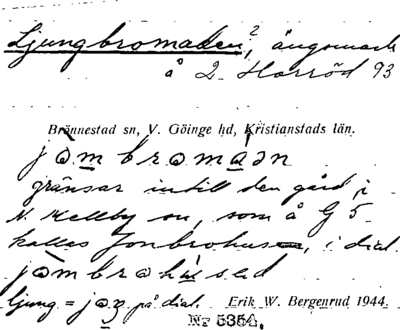 Ljungbromaden?, ängsmark
å 2 Horröd 93
Brönnestad sn, V. Göinge hd, Kristianstads län.
jɔ̀m broma̱ən
gränsar intill den gård i
N. Mellby sn, som å G 5
kallas Jonbrohuse, i dial.
jɔ̀mbrohu̱sed
ljung = jɔŋ på dial. Erik W. Bergenrud 1944.
Nr 5354.